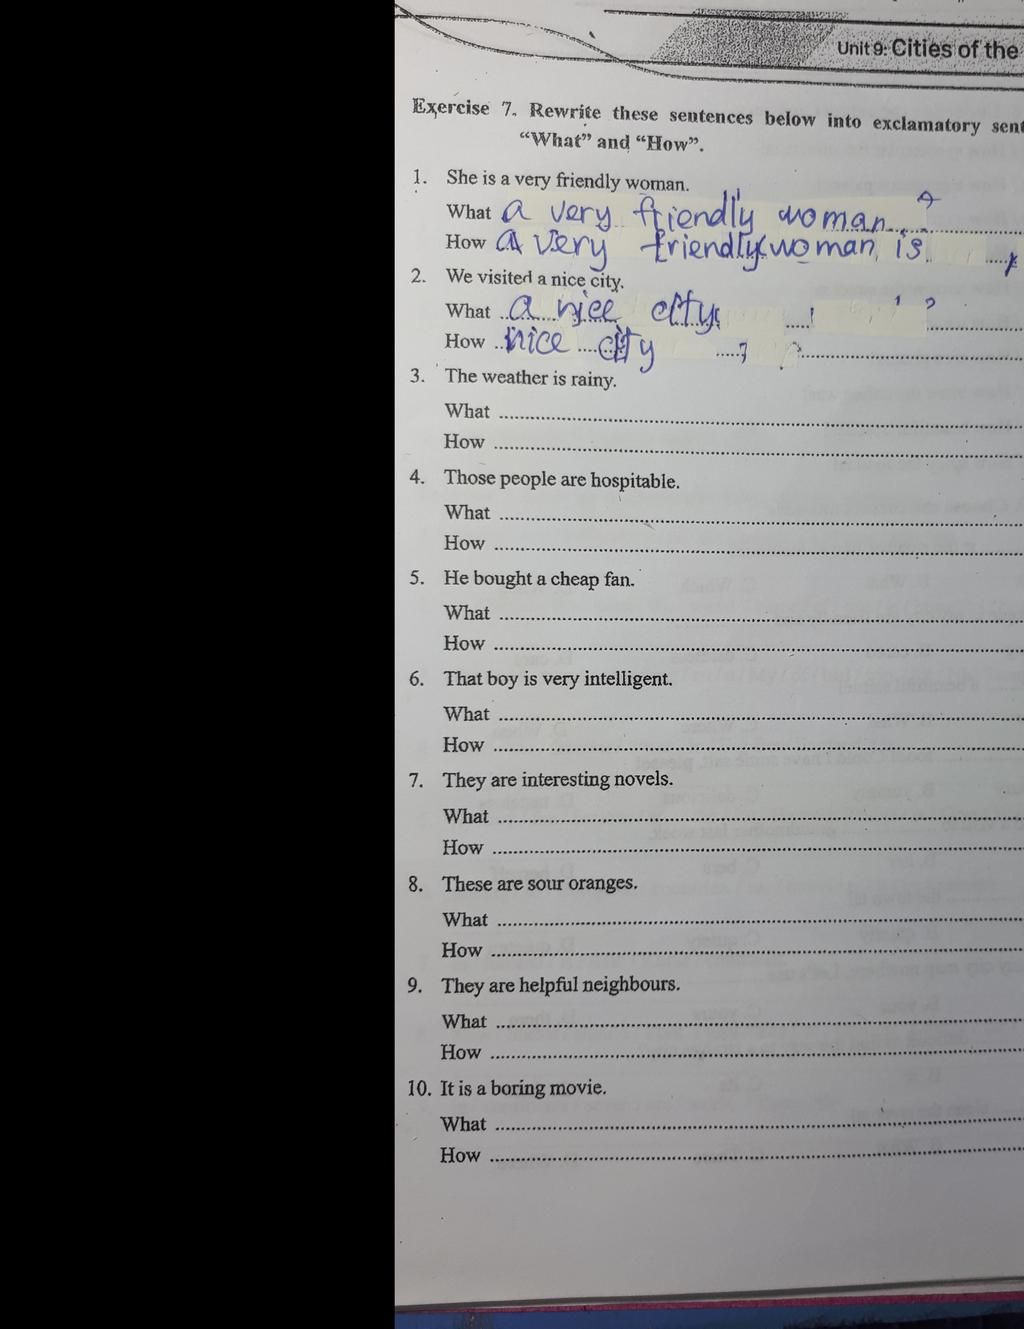 Unit 9: Cities of the
Exercise 7. Rewrite these sentences below into exclamatory sent
“What” and “How”.
1. She is a very friendly woman.
What a very friendly woman
How a very friendly woman is
2. We visited a nice city.
What a nice city
How nice city
3. The weather is rainy.
What
How
4. Those people are hospitable.
What
How
5. He bought a cheap fan.
What
How
6. That boy is very intelligent.
What
How
7. They are interesting novels.
What
How
8. These are sour oranges.
What
How
9. They are helpful neighbours.
What
How
10. It is a boring movie.
What
How